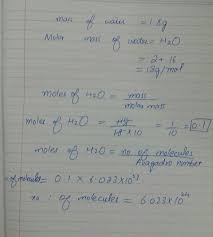 mass of water = 1.8g
Molar mass of water = H2O
= 2 + 16
= 18g/mol
moles of H2O = mass / molar mass
moles of H2O = 18 / 18 × 10 = 1 / 10 = 0.1
moles of H2O = no of molecules / Avagadro number
of molecules = 0.1 × 6.023×10^23
no : of molecules = 6.023×10^24